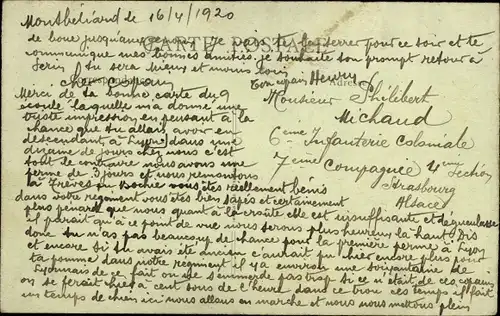 Montbéliard le 16/4/1920
de boue jusqu'au Je vais te serrer pour ce soir et te
communique mes bonnes amitiés je souhaite son prompt retour à
CARTE POSTALE
tu sera mieux et moins loin
Cher Copain
Ton copain Henry
Correspondance
Adresse
Merci de ta bonne carte du 9
écoulé laquelle m'a donné une
triste impression en pensant à la
chance que tu allais avoir en
descendant à Lyon dans une
dizaine de jours ici nous c'est
tout le contraire nous avons une
perme de 3 jours et nous remontons
à Trèves en Bochie vous êtes réellement bénis
dans votre régiment vous êtes bien tapés et certainement
plus peinard que nous quant à la croûte elle est insuffisante et dégueulasse
il paraît qu'à ce point de vue nous serons plus heureux là haut. Dis
donc tu n'as pas beaucoup de chance pour la première perme à Lyon
et encore si tu avais été ancien c'aurait pu chier encore plus pour
ta pomme dans notre régiment il y a environ une soixantaine de
Lyonnais de ce fait on ne s'emmerde pas trop si ce n'était de ces copains
on se ferait chier à cent sous de l'heure dans ce trou ces temps il fait
un temps de chien ici nous allons en marche et nous nous mettons plein
Monsieur Philibert
Michaud
6ème Infanterie Coloniale
7ème Compagnie 4ème Section
Strasbourg
Alsace